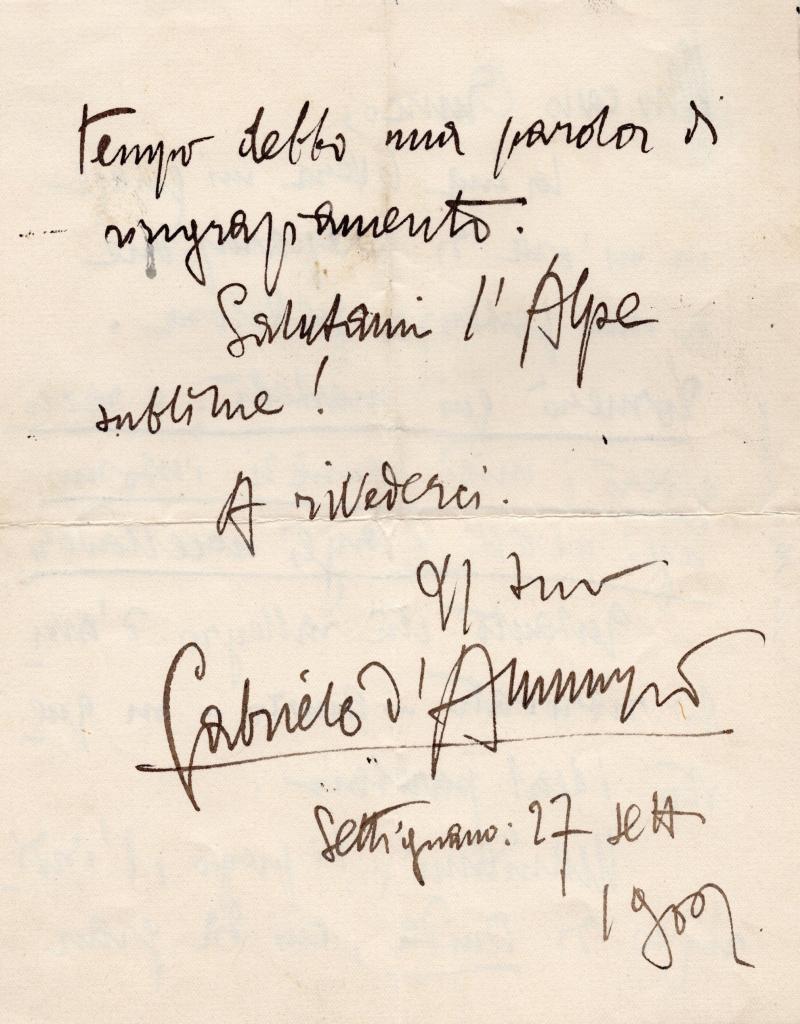 tempo debbo una parola di
ringraziamento.
Salutami l'Alpe
sublime!
A rivederci.
Il tuo
Gabriele d'Annunzio
Settignano: 27 sett
1902.